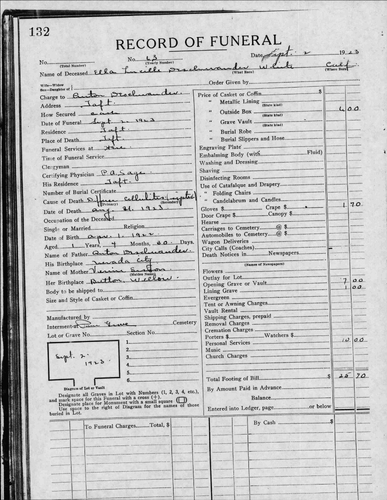 132
RECORD OF FUNERAL
No. No. 63 Date Sept. 2 1923
(Total Number) (Yearly Number)
Name of Deceased Ella Lucille White Calif.
(What Race) (Where Born)
Wife—Widow
Son—Daughter of Order Given by
Charge to Anton
Address Taft
How Secured
Date of Funeral Sept 2 1923
Residence Taft
Place of Death Taft
Funeral Services at
Time of Funeral Service
Clergyman
Certifying Physician
His Residence Taft
Number of Burial Certificate
Cause of Death
Date of Death Aug 31, 1923
Occupation of the Deceased
Single or Married Religion
Date of Birth Apr. 1, 1922
Aged 1 Years 4 Months Days
Name of Father Anton
His Birthplace Nevada City
Name of Mother
Her Birthplace Button Willow
Body to be shipped to
Size and Style of Casket or Coffin
Manufactured by
Interment Cemetery
Lot or Grave No. Section No.
Sept. 2
1923
1.
2.
3.
4.
5.
6.
Diagram of Lot or Vault
Designate all Graves in Lot with Numbers (1, 2, 3, 4, etc.),
and mark space for this Funeral with a cross (+).
Designate place for Monument with a small square
Use space to right of Diagram for names of those
buried in Lot.
To Funeral Charges Total, $
Price of Casket or Coffin
" Metallic Lining
" Outside Box 6.00
" Grave Vault
" Burial Robe
" Burial Slippers and Hose
Engraving Plate
Embalming Body (with Fluid)
Washing and Dressing
Shaving
Disinfecting Rooms
Use of Catafalque and Drapery
" Folding Chairs
" Candelabrum and Candles
Gloves $ Crape $ 1.70
Door Crape $ Canopy $
Hearse
Carriages to Cemetery @ $
Automobiles to Cemetery @ $
Wagon Deliveries
City Calls (Coaches)
Death Notices in Newspapers
(Names of Newspapers)
Flowers
Outlay for Lot
Opening Grave or Vault 7.00
Lining Grave 1.00
Evergreen
Tent or Awning Charges
Vault Rental
Shipping Charges, prepaid
Removal Charges
Cremation Charges
Porters $ Watchers $
Personal Services 10.00
Music
Church Charges
Total Footing of Bill $ 25.70
By Amount Paid in Advance
Balance
Entered into Ledger, page or below
By Cash $